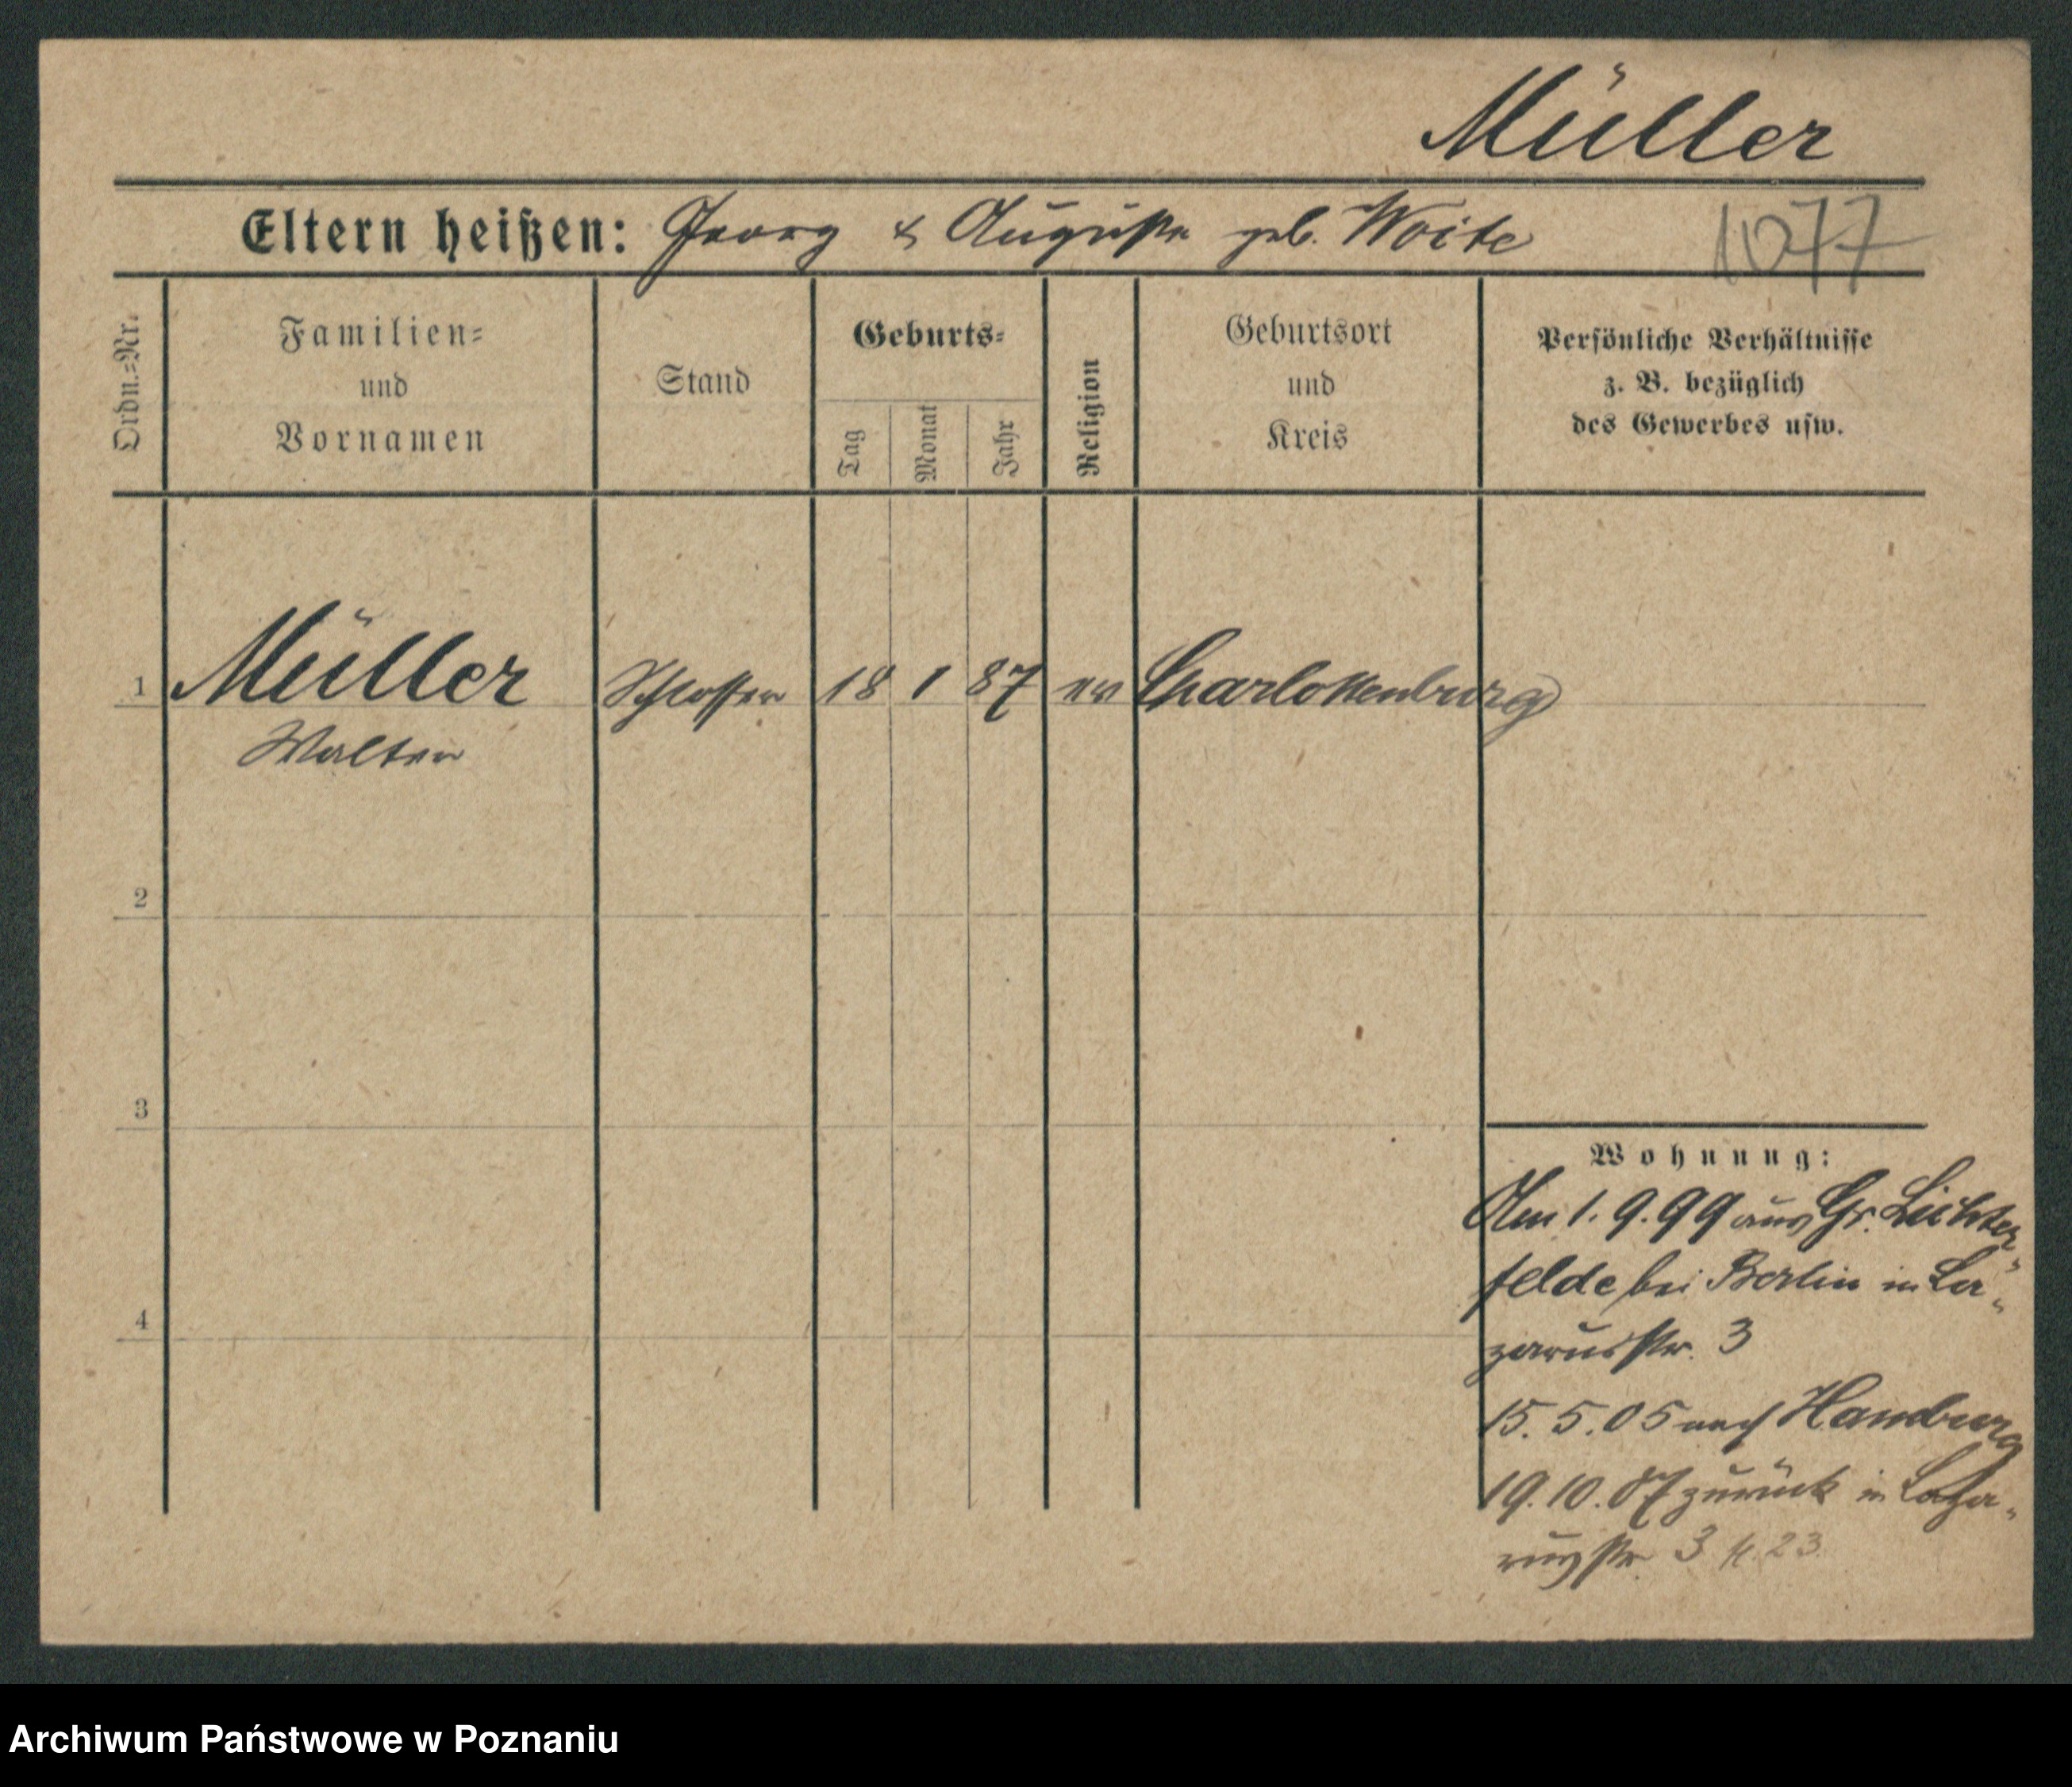 Müller
Eltern heißen: Georg & Auguste geb. Woite
1077
Ordn.-Nr.
Familien-
und
Vornamen
Stand
Geburts-
Tag
Monat
Jahr
Religion
Geburtsort
und
Kreis
Persönliche Verhältnisse
z. B. bezüglich
des Gewerbes usw.
1 Müller Schlosser 18 1 87 ev Charlottenburg
Walter
2
3
4
Wohnung:
Am 1. 9. 99 aus Gr. Lichter
felde bei Berlin in La„
zarusstr. 3
15. 5. 05 nach Hamburg
19. 10. 07 zurück in Laza„
russtr. 3 23.
Archiwum Państwowe w Poznaniu